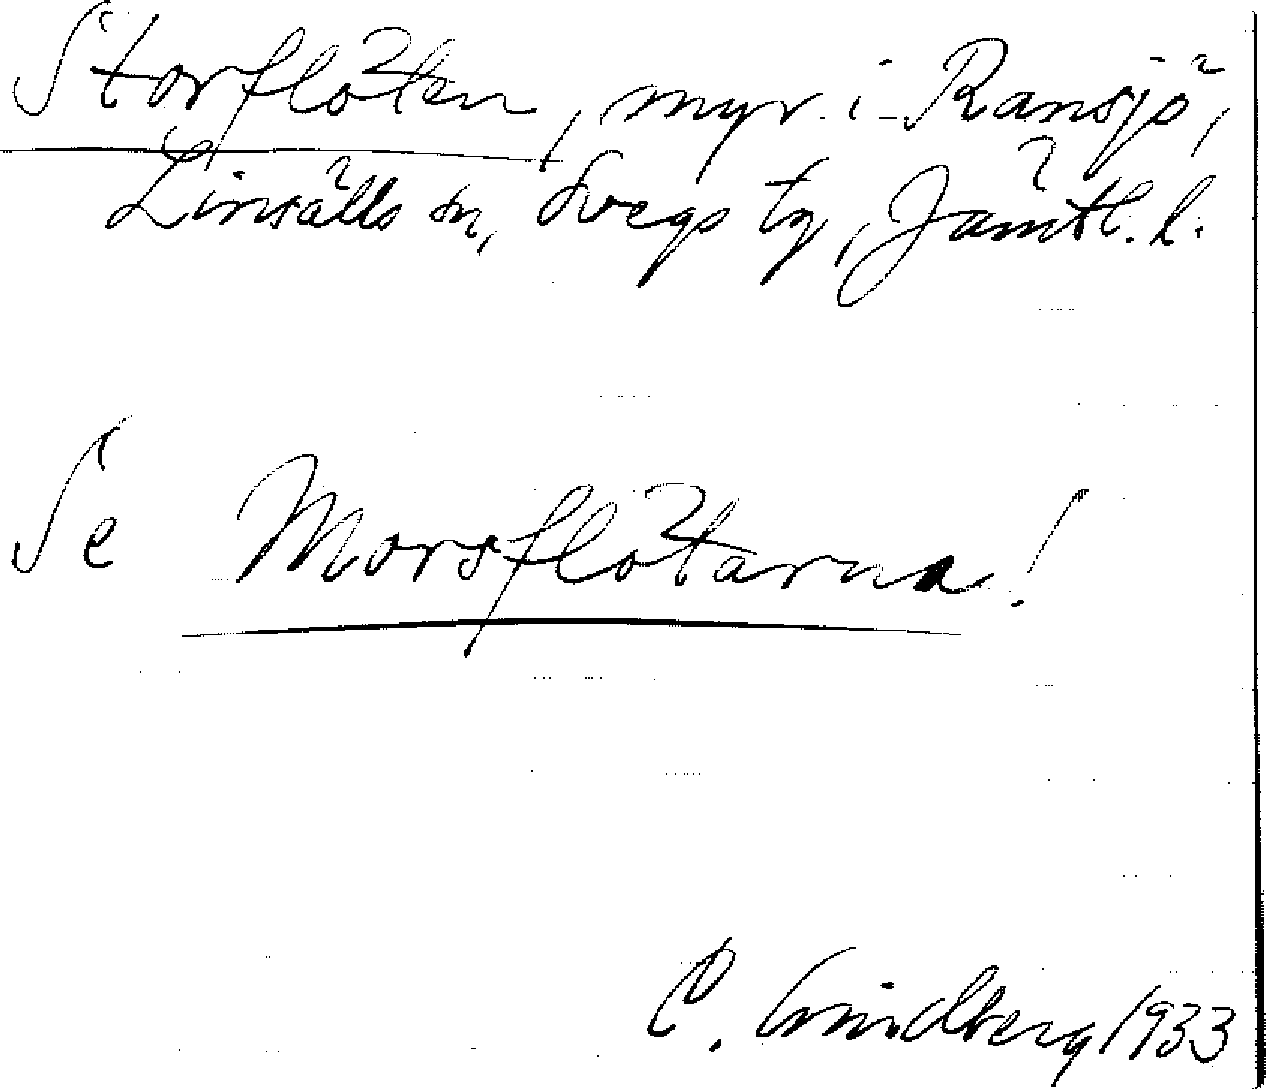 Storflöten, myr i Ransjö,
Linsälls sn, Svegs tg, Jämtl. l.
Se Morsflötarna!
C. Lindberg 1933